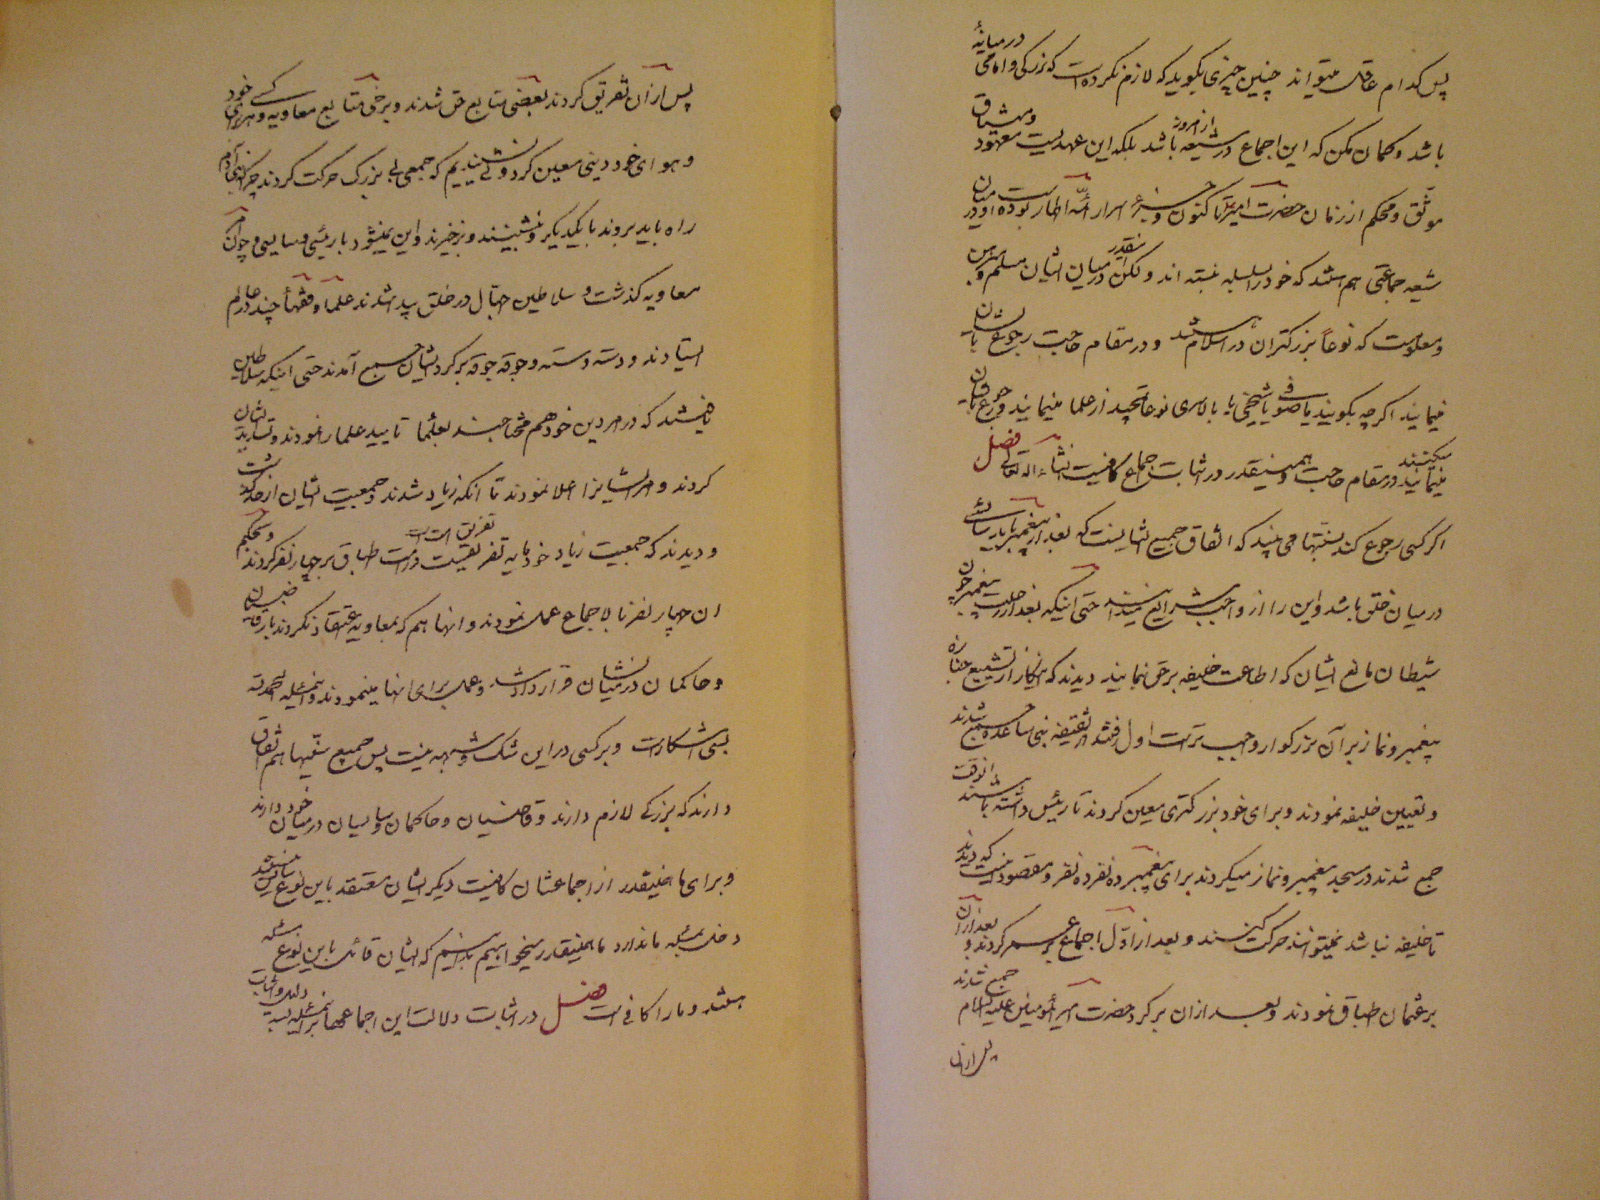 پس کدام عاقل میتواند چنین چیزی بگوید که لازم نکرده است که بزرگی و امامی در میانهٔ
باشد و گمان مکن که این اجماع در شیعه از امروز باشد بلکه این عهدیست معهود و میثاق
موثق و محکم از زمان حضرت امیر تا کنون و جزء اسرار ائمه اطهار بوده است و در میان
شیعه جماعتی هم هستند که خود را بسلسله بسته اند و لکن اینقدر در میان ایشان مسلم و
و معلومست که نوعاً بزرگتران در اسلام هستند و در مقام حاجت رجوع بایشان
مینمایند اگر چه بگویند یا صوفی یا شیخی یا بالاسری نوعاً تمجید از علما مینمایند و رجوع بایشان
مینمایند در مقام حاجت و همینقدر در اثبات اجماع کافیست انشاء الله تعالی فصل
اگر کسی رجوع کند بسنیها می بیند که اتفاق جمیع آنها اینست که بعد از پیغمبر باید
در میان خلق باشد و این را از واجب شرایع میدانند حتی اینکه بعد از رحلت پیغمبر چون
شیطان مانع ایشان که اطاعت خلیفه برحق نمایند دیدند که از تشییع جنازه
پیغمبر و نماز بر آن بزرگوار واجب تر است اول رفتند در سقیفه بنی ساعده جمع شدند
و تعیین خلیفه نمودند و برای خود بزرگتری معین کردند تا رئیس داشته باشند آنوقت
جمع شدند در مسجد پیغمبر و نماز میکردند برای پیغمبر ده نفر ده نفر و مقصود اینست که دیدند
تا خلیفه نباشد نمیتوانند حرکت کنند و بعد از اول اجماع بر عمر کردند و بعد از آن
بر عثمان اطباق نمودند و بعد از آن برگرد حضرت امیر المؤمنین علیه السلام جمع شدند
پس از آن
پس از آن تفریق کردند بعضی متابع حق شدند و برخی متابع معاویه و هر کسی برای خود
و هوای خود دینی معین کرد و نشنیدیم که جمعی بی بزرگ حرکت کردند چرا که بنی آدم
راه باید بروند با یکدیگر و بنشینند و برخیزند و این نمیشود بی رئیسی و سایسی و چون
معاویه گذشت و سلاطین جهال در خلق پیدا شدند علما و فقها چند در عالم
ایستادند و دسته دسته و جوقه جوقه برگرد ایشان جمع آمدند حتی اینکه سلاطین
یافتند که در امر دین خود هم محتاجند بعلما تایید علما را نمودند و تسدید ایشان
کردند و امر ایشانرا اعلا نمودند تا آنکه زیاد شدند و جمعیت ایشان از حد گذشت
و دیدند که جمعیت زیاد خود مایه تفریق امت است اطباق بر چهار نفر کردند و محکم
ان چهار نفر بالاجماع عمل نمودند و انها هم که بمعاویه اعتقاد نکردند باز قاضیان
و حاکمان در میانشان قرار دادند و عمل برای انها مینمودند و این مسئله الحمد لله
بسی آشکار است و بر کسی در این شک و شبهه نیست پس جمیع سنیها هم اتفاق
دارند که بزرگی لازم دارند و قاضیان و حاکمان و والیان در میان خود دارند
و برای ما همینقدر از اجماعشان کافیست دیگر ایشان معتقد باین نوع
دخلی بمسئله ما ندارد ما همینقدر میخواهیم بدانیم که ایشان قائل باین نوع مسئله
هستند و ما را کافی است فصل در اثبات دلالت این اجماعها بر این مسئله